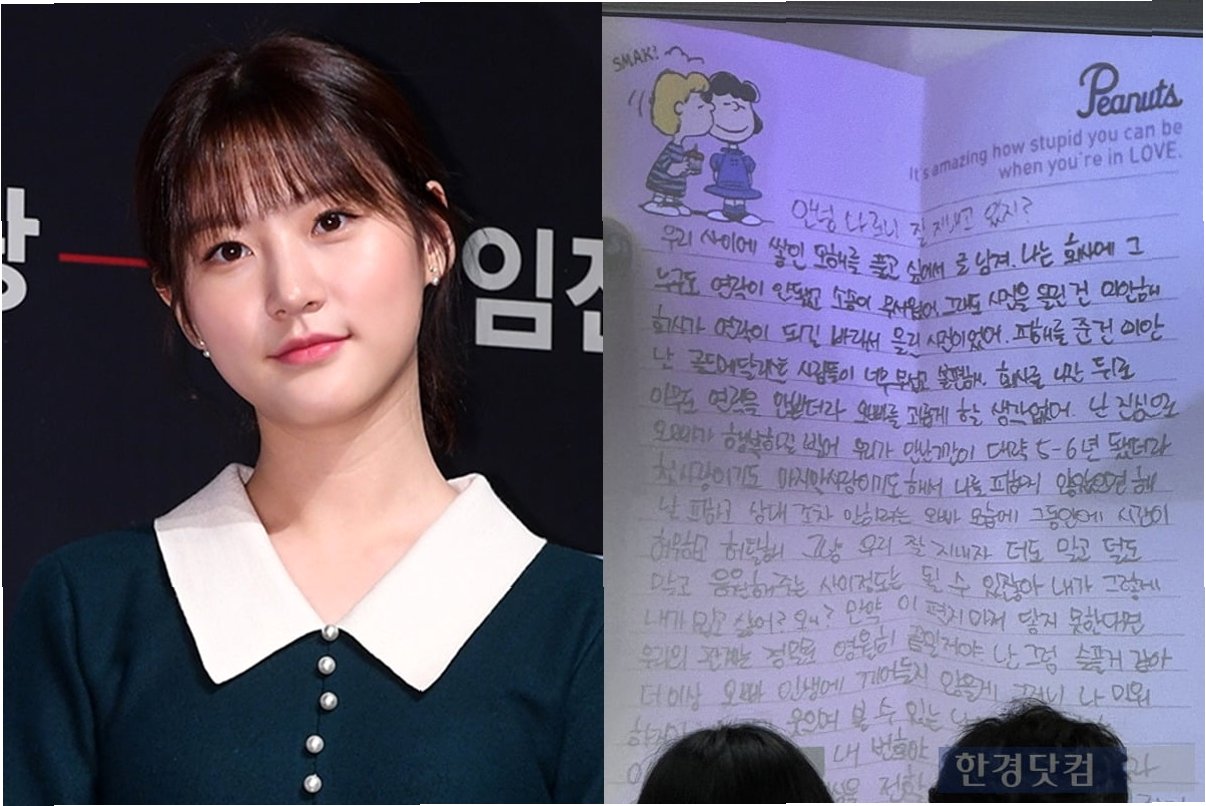 임
SMAK!
Peanuts
It's amazing how stupid you can be
when you're in LOVE.
안녕 나 잘 지내고 있지?
우리 사이에 쌓인 오해를 풀고 싶어서 글 남겨. 나는 회사에 그
누구도 연락이 안됐고 소송이 무서웠어 그래도 사진을 올린 건 미안해
회사가 연락이 되길 바라서 올린 사진이었어. 피해를 준건 미안
난 골드메달리스트 사람들이 너무 무섭고 불편해. 회사를 나간 뒤로
아무도 연락을 안받더라 오빠를 괴롭게 할 생각없어. 난 진심으로
오빠가 행복하길 빌어 우리가 만난기간이 대략 5-6년 됐더라
첫사랑이기도 마지막사랑이기도 해서 나를 피하지 않았으면 해
날 피하고 상대 조차 안하려는 오빠 모습에 그동안에 시간이
허무하고 허탈해 그냥 우리 잘 지내자 더도 말고 덜도
말고 응원해주는 사이정도는 될 수 있잖아 내가 그렇게
내가 밉고 싫어? 왜? 만약 이 편지마저 닿지 못한다면
우리의 관계는 정말로 영원히 끝일거야. 난 그럼 슬플거 같아
더이상 오빠 인생에 끼어들지 않을게 그러니 나 미워
웃으며 볼 수 있는
내 번호야
한경닷컴